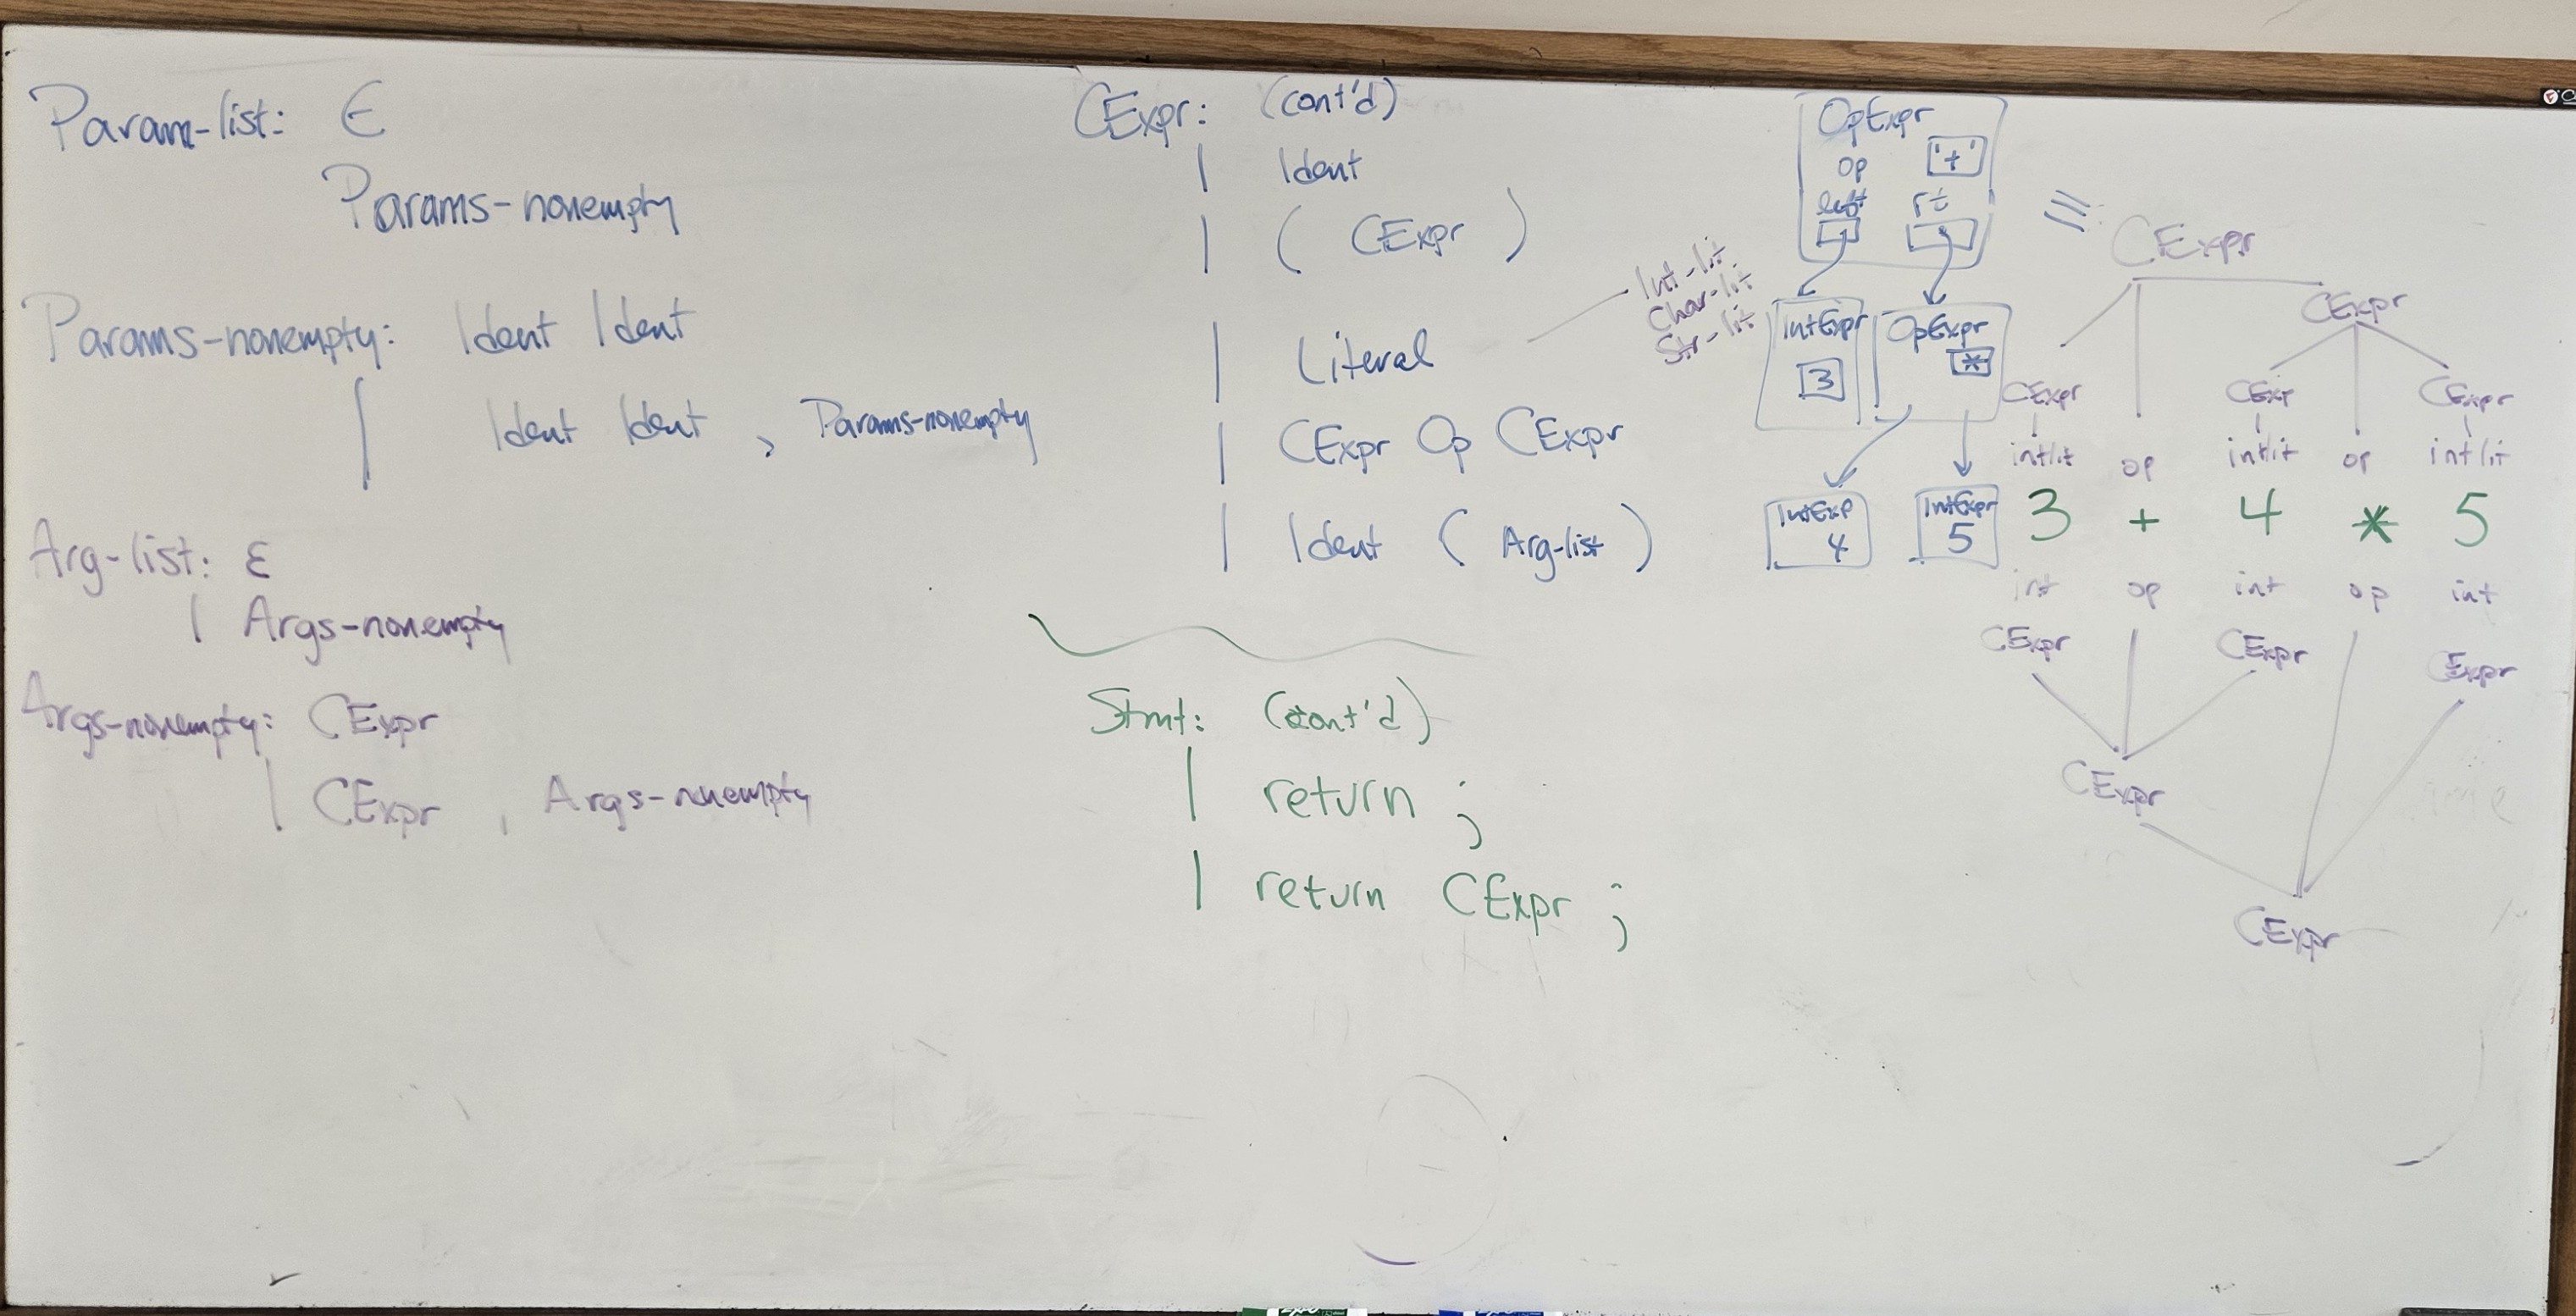 Param-list: ϵ
Params-nonempty
Params-nonempty: Ident Ident
| Ident Ident , Params-nonempty
Arg-list: ε
| Args-nonempty
Args-nonempty: CExpr
| CExpr , Args-nonempty
CExpr: (cont'd)
| Ident
| ( CExpr )
| Literal
Int-lit
Char-lit
Str-lit
| CExpr Op CExpr
| Ident ( Arg-list )
Stmt: (cont'd)
| return ;
| return CExpr ;
OpExpr
op '+'
left rt
IntExpr OpExpr
3 *
IntExp IntExpr
4 5
≡
CExpr
CExpr
CExpr CExpr CExpr
intlit op intlit op intlit
3 + 4 * 5
int op int op int
CExpr CExpr CExpr
CExpr
CExpr